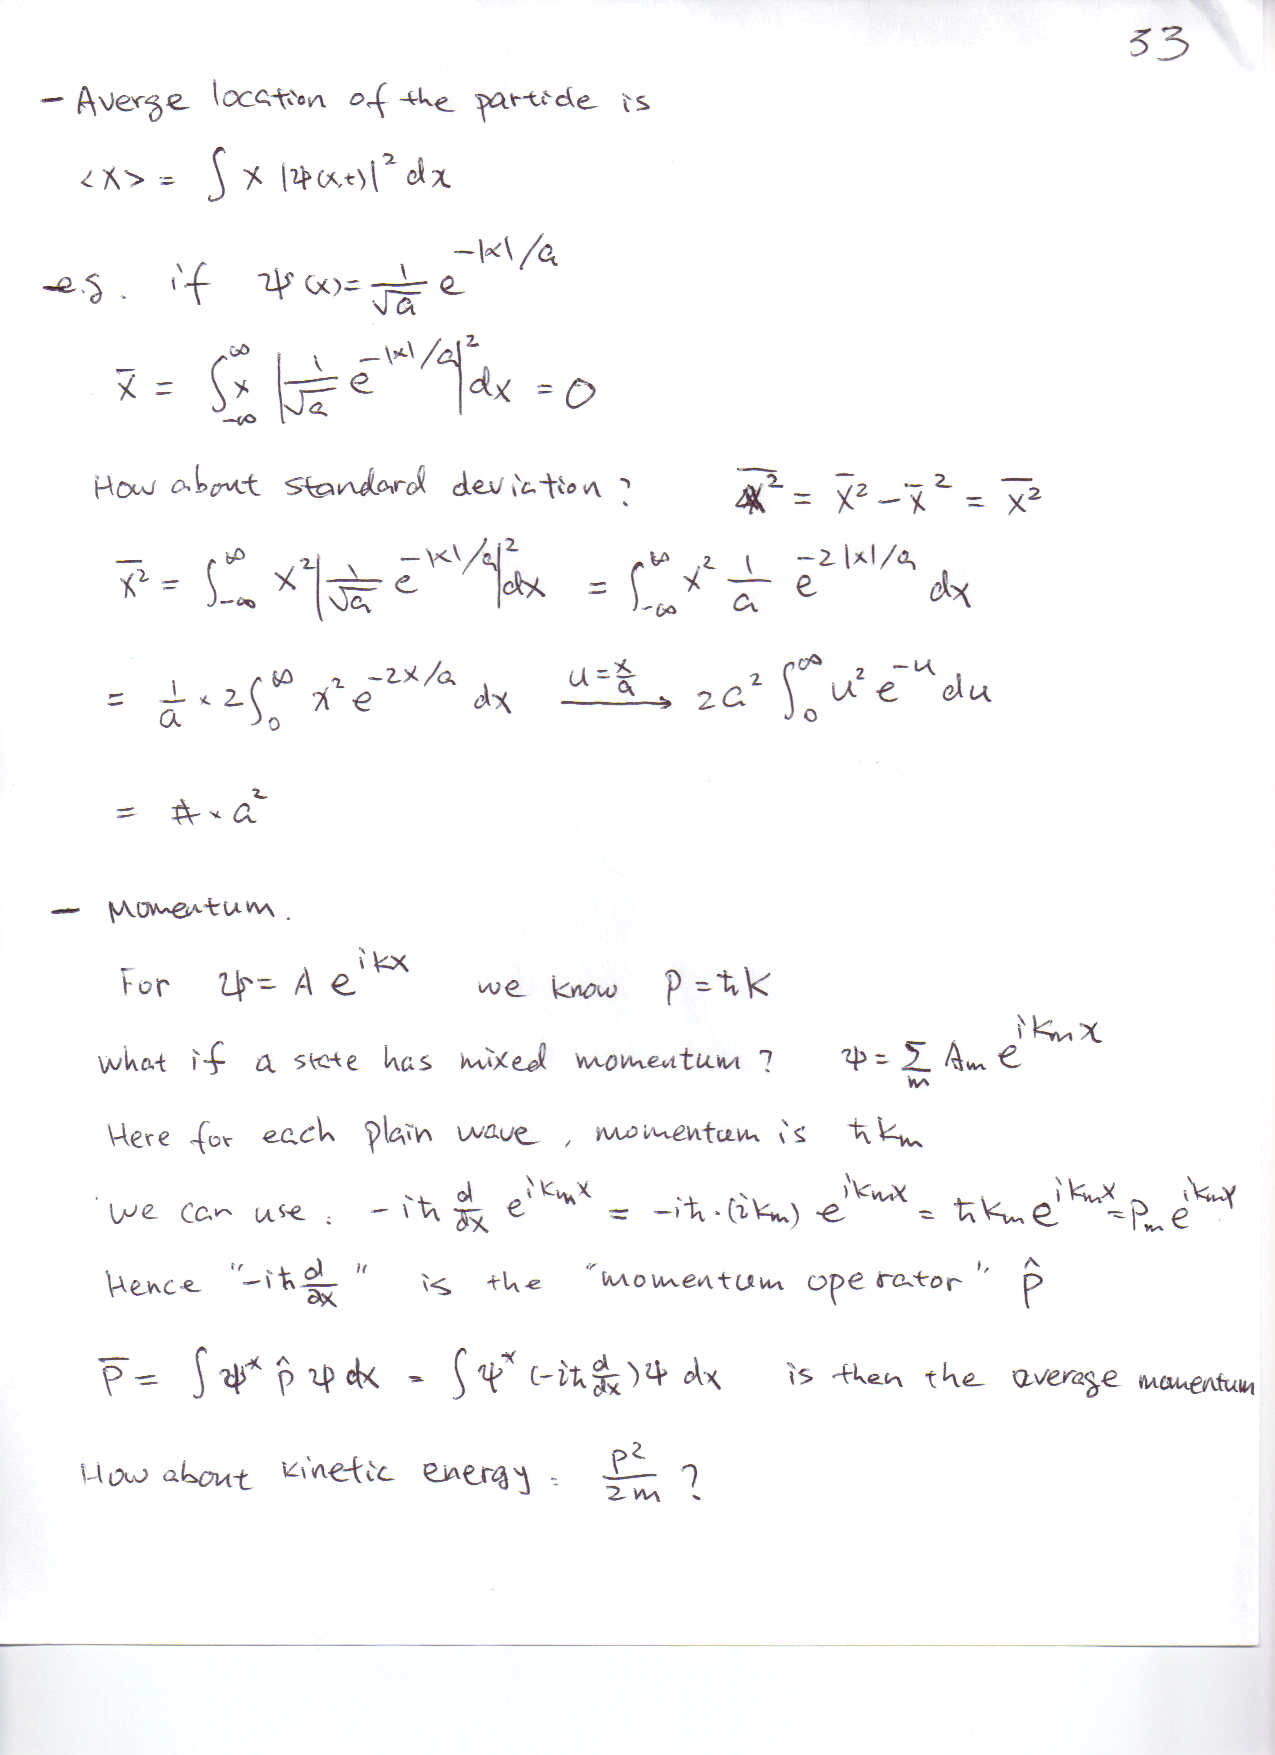 33
- Averge location of the particle is
<x> = ∫ x |ψ(x,t)|² dx
e.g. if ψ(x) = 1/√a e^(-|x|/a)
x̄ = ∫_{-∞}^{∞} x |1/√a e^(-|x|/a)|² dx = 0
How about standard deviation? = x̄² - x̄² = x̄²
x̄² = ∫_{-∞}^{∞} x² |1/√a e^(-|x|/a)|² dx = ∫_{-∞}^{∞} x² 1/a e^(-2|x|/a) dx
= 1/a × 2 ∫_0^∞ x² e^(-2x/a) dx u = x/a → 2a² ∫_0^∞ u² e^(-u) du
= # × a²
- Momentum.
For ψ = A e^(ikx) we know p = ħk
what if a state has mixed momentum? ψ = Σ_m A_m e^(ik_m x)
Here for each plain wave, momentum is ħk_m
We can use: -iħ d/dx e^(ik_m x) = -iħ·(ik_m) e^(ik_m x) = ħk_m e^(ik_m x) = p_m e^(ik_m x)
Hence "-iħ d/dx" is the "momentum operator" p̂
p̄ = ∫ ψ* p̂ ψ dx = ∫ ψ* (-iħ d/dx) ψ dx is then the average momentum
How about kinetic energy: p²/2m ?